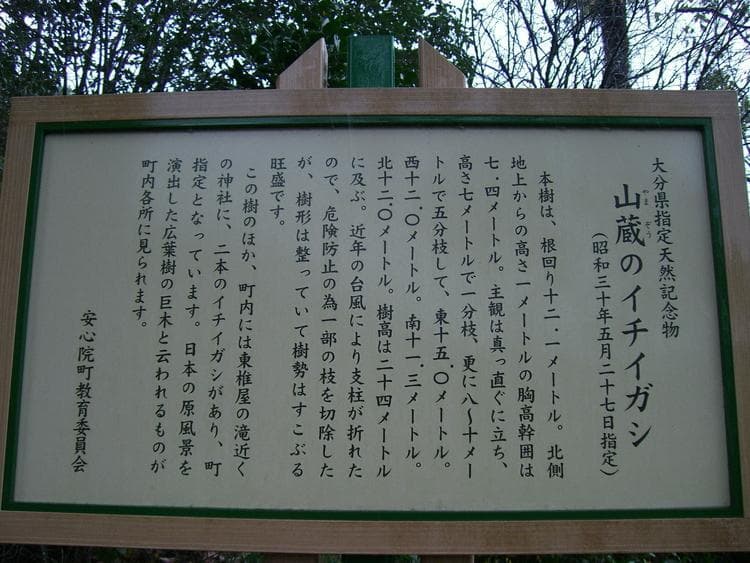 大分県指定天然記念物
山蔵のイチイガシ
やま ぞう
(昭和三十年五月二十七日指定)
本樹は、根回り十二.一メートル。北側
地上からの高さ一メートルの胸高幹囲は
七.四メートル。主観は真っ直ぐに立ち、
高さ七メートルで一分枝、更に八〜十メー
トルで五分枝して、東十五.〇メートル。
西十二.〇メートル。南十一.三メートル。
北十二.〇メートル。樹高は二十四メートル
に及ぶ。近年の台風により支柱が折れた
ので、危険防止の為一部の枝を切除した
が、樹形は整っていて樹勢はすこぶる
旺盛です。
この樹のほか、町内には東椎屋の滝近く
の神社に、二本のイチイガシがあり、町
指定となっています。日本の原風景を
演出した広葉樹の巨木と云われるものが
町内各所に見られます。
安心院町教育委員会